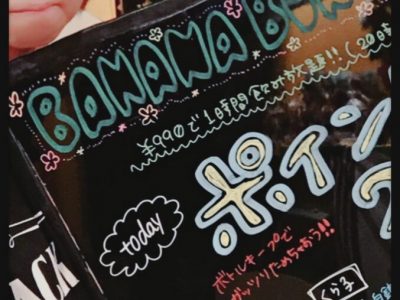 BANANA B
¥990で1時間飲み放題!!(20時
ポイン
today
ボトルキープで
ガッツリためちゃおう!!
ACK